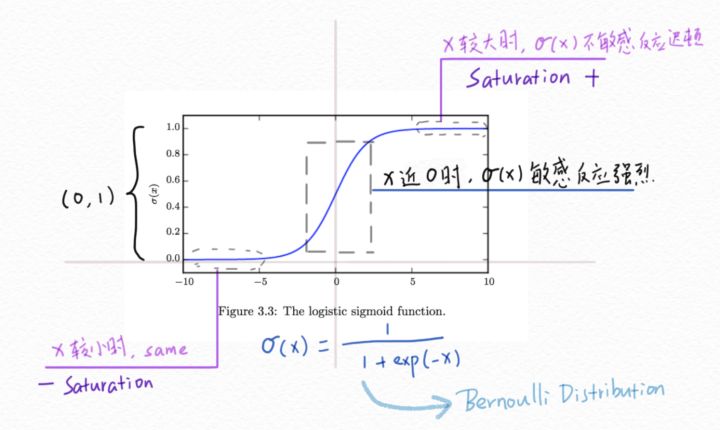 x较大时, σ(x)不敏感反应迟顿
Saturation +
1.0
0.8
0.6
0.4
0.2
0.0
σ(x)
(0,1)
x近0时, σ(x)敏感反应强烈.
−10 −5 0 5 10
Figure 3.3: The logistic sigmoid function.
x较小时, same
− Saturation
σ(x) = 1 / 1 + exp(-x)
Bernoulli Distribution